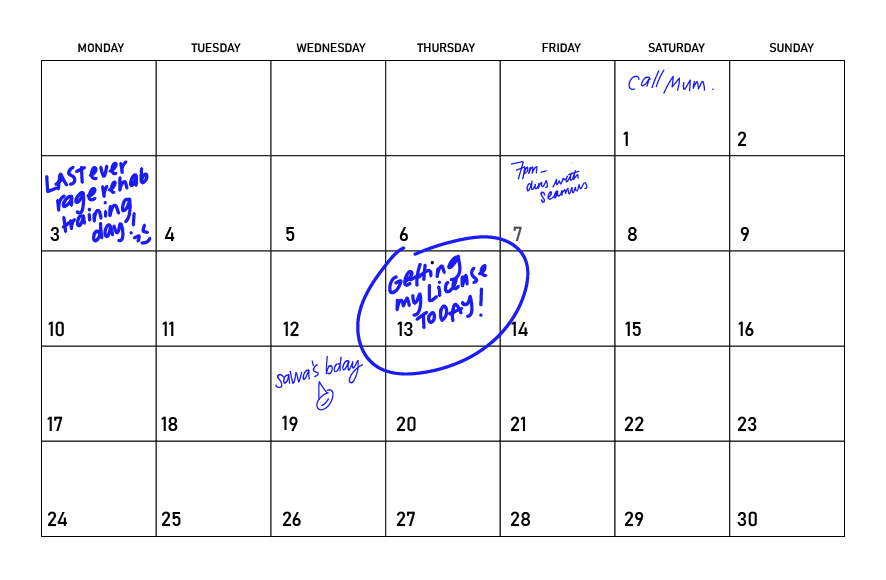 MONDAY TUESDAY WEDNESDAY THURSDAY FRIDAY SATURDAY SUNDAY
Call Mum.
1 2
LAST ever
rage rehab
training
day!
7pm-
dins with
seamus
3 4 5 6 7 8 9
Getting
my License
TODAY!
10 11 12 13 14 15 16
sawa's bday
17 18 19 20 21 22 23
24 25 26 27 28 29 30